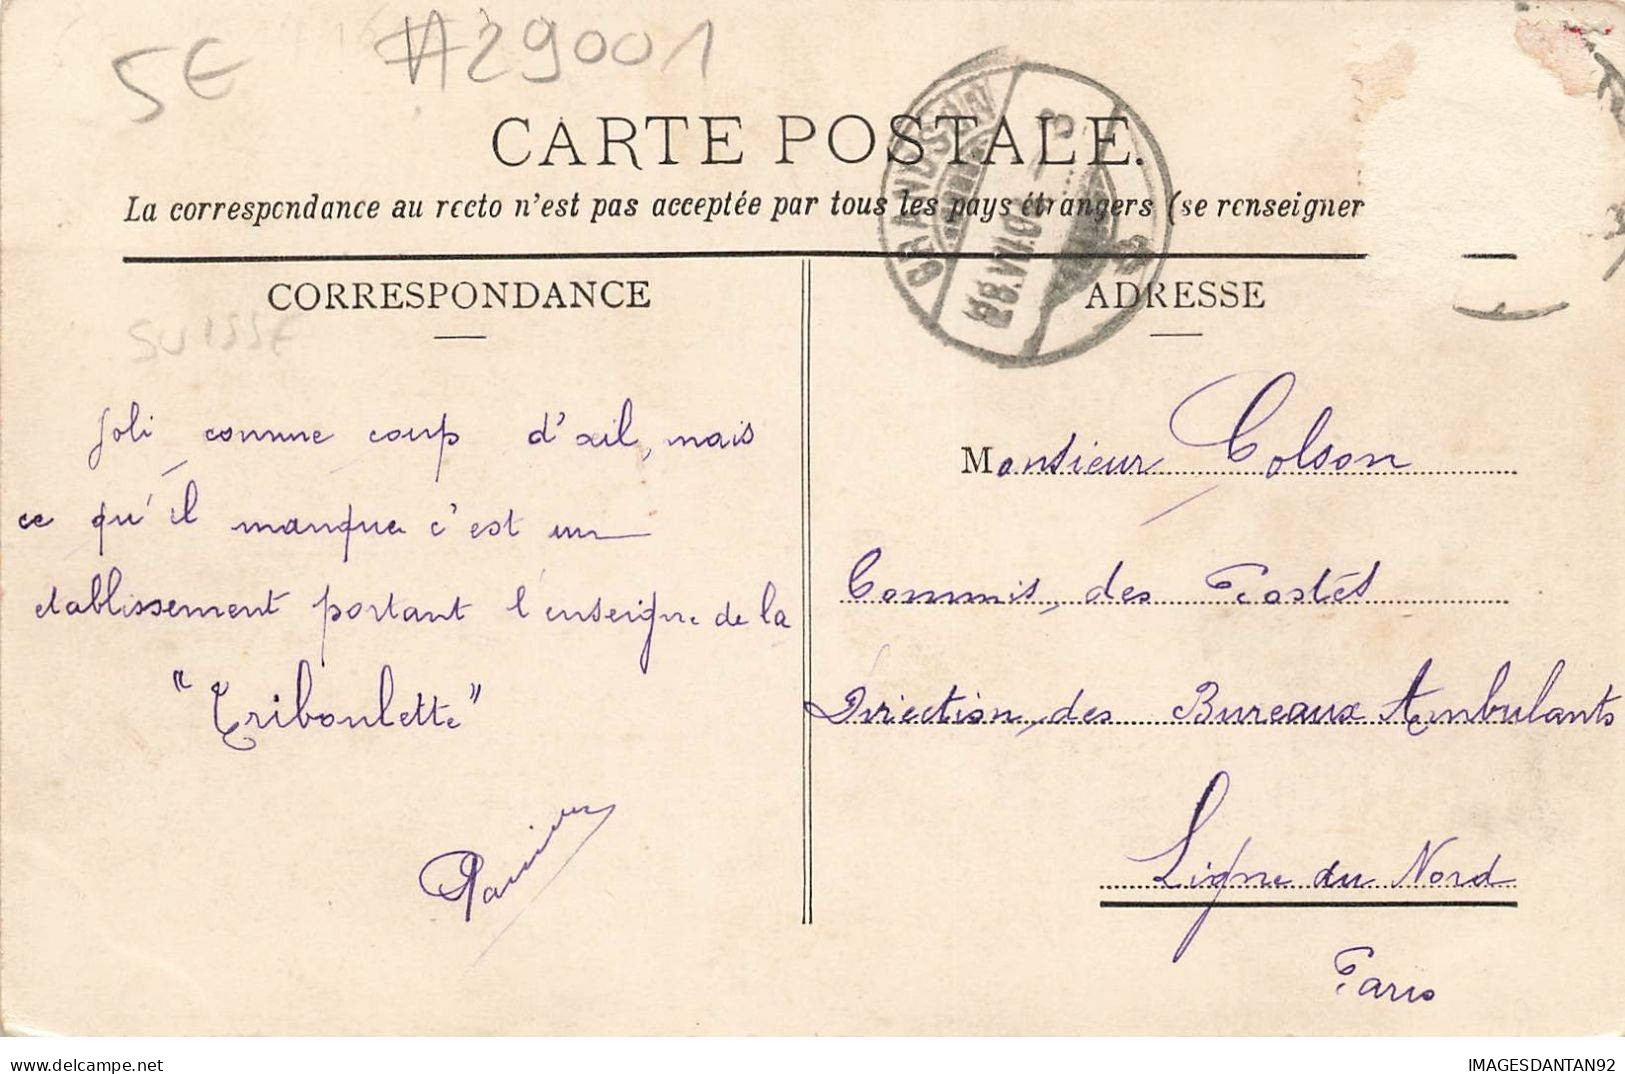 5€ #29001
CARTE POSTALE.
La correspondance au recto n'est pas acceptée par tous les pays étrangers (se renseigner
GRANDSON
28.VII.0
CORRESPONDANCE
ADRESSE
SUISSE
Joli comme coup d'œil, mais
ce qu'il manque c'est un
etablissement portant l'enseigne de la
"Triboulette"
Monsieur Colson
Commis des Postes
Direction des Bureaux Ambulants
Ligne du Nord
Paris
IMAGESDANTAN92